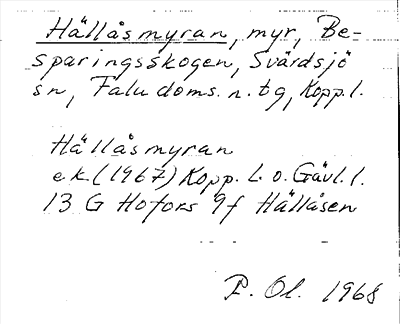 Hällåsmyran, myr, Be-
sparingsskogen, Svärdsjö
sn, Falu doms. n. tg, Kopp. l.
Hällåsmyran
e.k. (1967) Kopp. L. o. Gävl. l.
13 G Hofors 9f Hällåsen
P. Ol. 1968